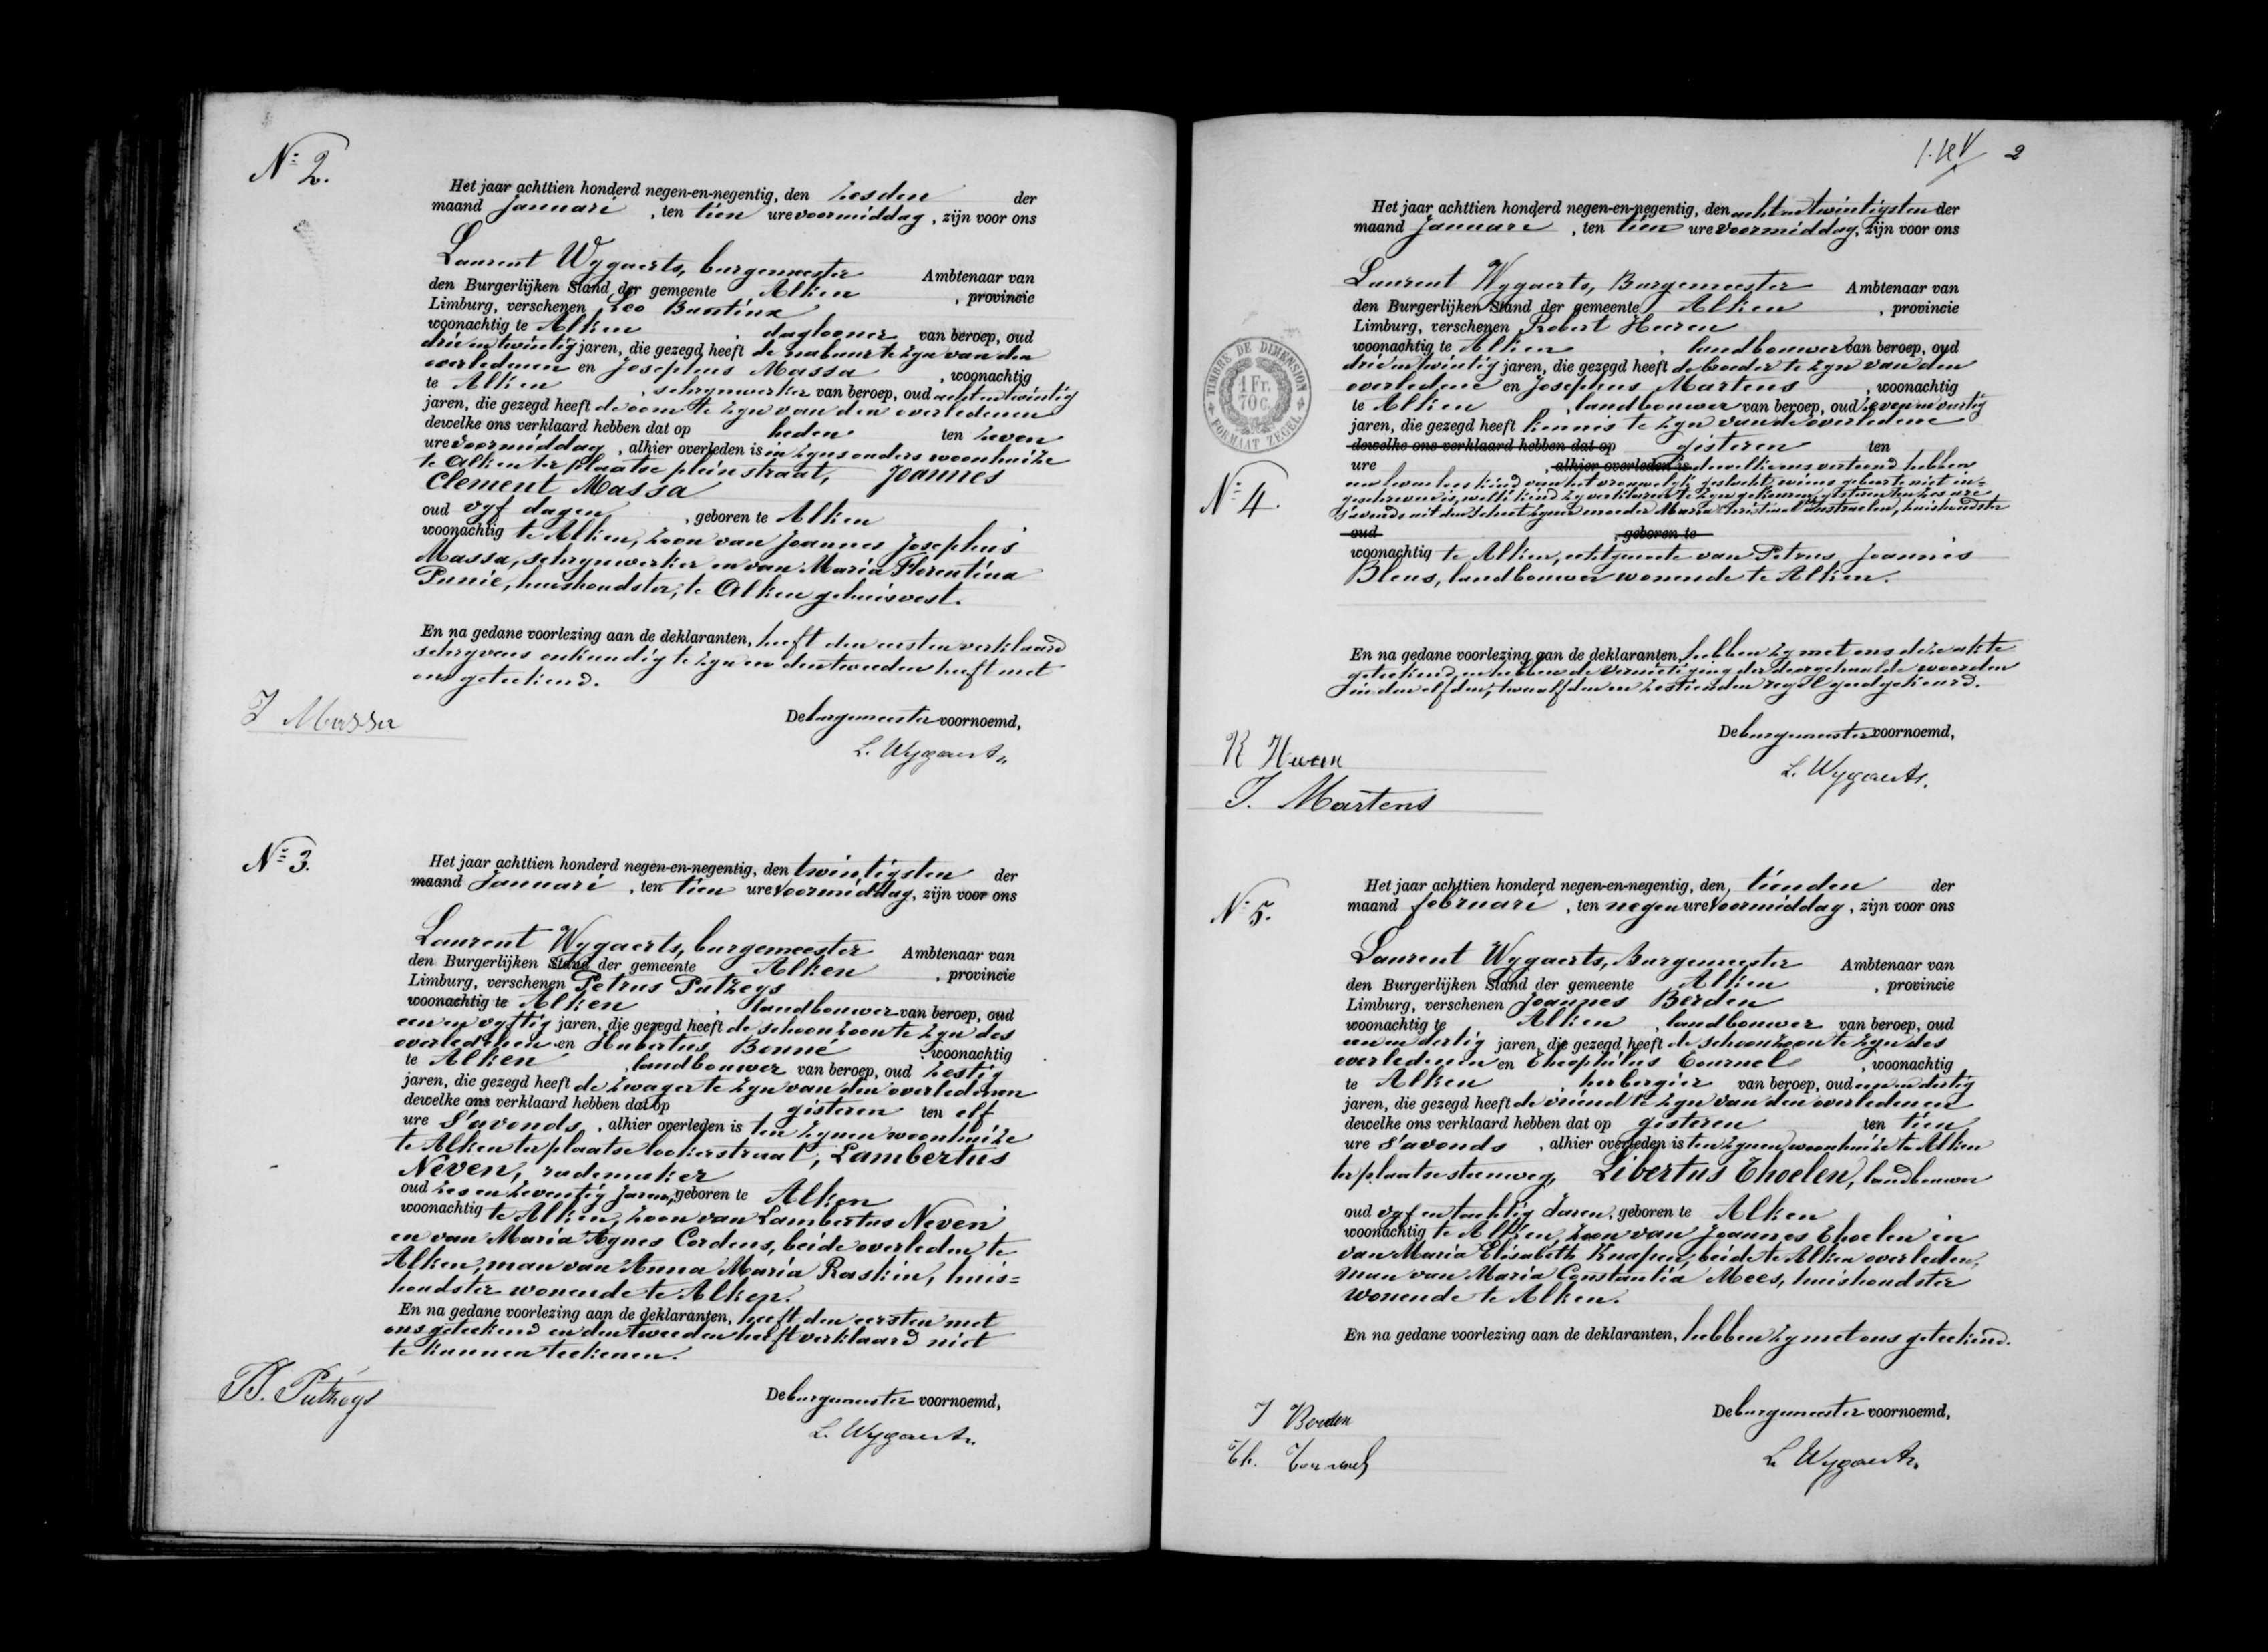 N<sup>r</sup> 2.
Het jaar achttien honderd negen-en-negentig, den zesden der
maand Januari , ten tien ure voormiddag , zijn voor ons
Laurent Wygaerts, burgemeester Ambtenaar van
den Burgerlijken Stand der gemeente Alken , provincie
Limburg, verschenen Leo Buntinx
woonachtig te Alken , daglooner van beroep, oud
drie en twintig jaren, die gezegd heeft de nabuur te zyn van den
overledenen en Josephus Massa , woonachtig
te Alken , schrynwerker van beroep, oud acht en twintig
jaren, die gezegd heeft de oom te zyn van den overledenen
dewelke ons verklaard hebben dat op heden ten zeven
ure voormiddag , alhier overleden is in zyns ouders woonhuize
te Alken ter plaatse pleinstraat, Joannes
Clement Massa
oud vyf dagen , geboren te Alken
woonachtig te Alken, zoon van Joannes Josephus
Massa, schrynwerker en van Maria Florentina
Punie, huishoudster, te Alken gehuisvest.
En na gedane voorlezing aan de deklaranten, heeft den eersten verklaard
schryvens onkundig te zyn en den tweeden heeft met
ons geteekend.
De burgemeester voornoemd,
J Massa
L. Wygaerts
N<sup>r</sup> 3.
Het jaar achttien honderd negen-en-negentig, den twintigsten der
maand Januari , ten tien ure voormiddag, zijn voor ons
Laurent Wygaerts, burgemeester Ambtenaar van
den Burgerlijken Stand der gemeente Alken , provincie
Limburg, verschenen Petrus Putzeys
woonachtig te Alken , landbouwer van beroep, oud
een en vyftig jaren, die gezegd heeft de schoonzoon te zyn des
overledenen en Hubertus Bonné , woonachtig
te Alken , landbouwer van beroep, oud zestig
jaren, die gezegd heeft de zwager te zyn van den overledenen
dewelke ons verklaard hebben dat op gisteren ten elf
ure s'avonds , alhier overleden is ten zynen woonhuize
te Alken ter plaatse lookerstraat, Lambertus
Neven, rademaker
oud zes en zeventig jaren, geboren te Alken
woonachtig te Alken, zoon van Lambertus Neven
en van Maria Agnes Cordens, beide overleden te
Alken, man van Anna Maria Raskin, huis=
houdster wonende te Alken.
En na gedane voorlezing aan de deklaranten, heeft den eersten met
ons geteekend en den tweeden heeft verklaard niet
te kunnen teekenen.
De burgemeester voornoemd,
P. Putzeys
L. Wygaerts
2
Het jaar achttien honderd negen-en-negentig, den acht en twintigsten der
maand Januari , ten tien ure voormiddag, zijn voor ons
Laurent Wygaerts, Burgemeester Ambtenaar van
den Burgerlijken Stand der gemeente Alken , provincie
Limburg, verschenen Robert Heeren
woonachtig te Alken , landbouwer van beroep, oud
drie en twintig jaren, die gezegd heeft de broeder te zyn van den
overledene en Josephus Martens , woonachtig
te Alken , landbouwer van beroep, oud zeven en veertig
jaren, die gezegd heeft kennis te zyn van de overledene
dewelke ons verklaard hebben dat op gisteren ten
ure , alhier overleden is dewelke ons vertoond hebben
een levenloos kind van het vrouwelyk geslacht, wiens geboorte niet in=
geschreven is, welk kind zy verklaren te zyn gekomen, gisteren ten zes ure
s'avonds uit den schoot zyner moeder Maria Christina Vanstraelen, huishoudster
oud geboren te
woonachtig te Alken, echtgenoote van Petrus Joannes
Bleus, landbouwer wonende te Alken.
TIMBRE DE DIMENSION
1 Fr.
70 c.
FORMAAT ZEGEL
N<sup>r</sup> 4.
En na gedane voorlezing aan de deklaranten, hebben zy met ons deze akte
geteekend en hebben de vernietiging der doorgehaalde woorden
in den elfden, twaalfden en zestienden regel goedgekeurd.
De burgemeester voornoemd,
R Heeren
L. Wygaerts
J. Martens
N<sup>r</sup> 5.
Het jaar achttien honderd negen-en-negentig, den tienden der
maand februari , ten negen ure voormiddag , zijn voor ons
Laurent Wygaerts, Burgemeester Ambtenaar van
den Burgerlijken Stand der gemeente Alken , provincie
Limburg, verschenen Joannes Berden
woonachtig te Alken , landbouwer van beroep, oud
een en dertig jaren, die gezegd heeft de schoonzoon te zyn des
overledenen en Theophilus Tournel , woonachtig
te Alken , herbergier van beroep, oud een en dertig
jaren, die gezegd heeft de vriend te zyn van den overledenen
dewelke ons verklaard hebben dat op gisteren ten tien
ure s'avonds , alhier overleden is ten zynen woonhuize te Alken
ter plaatse steenweg, Libertus Thoelen, landbouwer
oud vyf en tachtig Jaren, geboren te Alken
woonachtig te Alken, zoon van Joannes Thoelen en
van Maria Elisabeth Knapen, beide te Alken overleden,
man van Maria Constantia Mees, huishoudster
wonende te Alken.
En na gedane voorlezing aan de deklaranten, hebben zy met ons geteekend.
De burgemeester voornoemd,
J Berden
Th. Tournel
L. Wygaerts